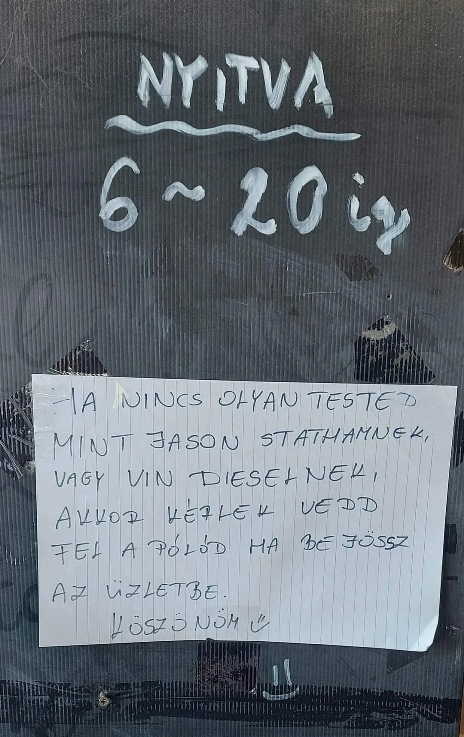 NYITVA
6 ~ 20 ig
HA NINCS OLYAN TESTED
MINT JASON STATHAMNEK,
VAGY VIN DIESELNEK,
AKKOR KÉRLEK VEDD
FEL A PÓLÓD HA BE JÖSSZ
AZ ÜZLETBE.
KÖSZÖNÖM